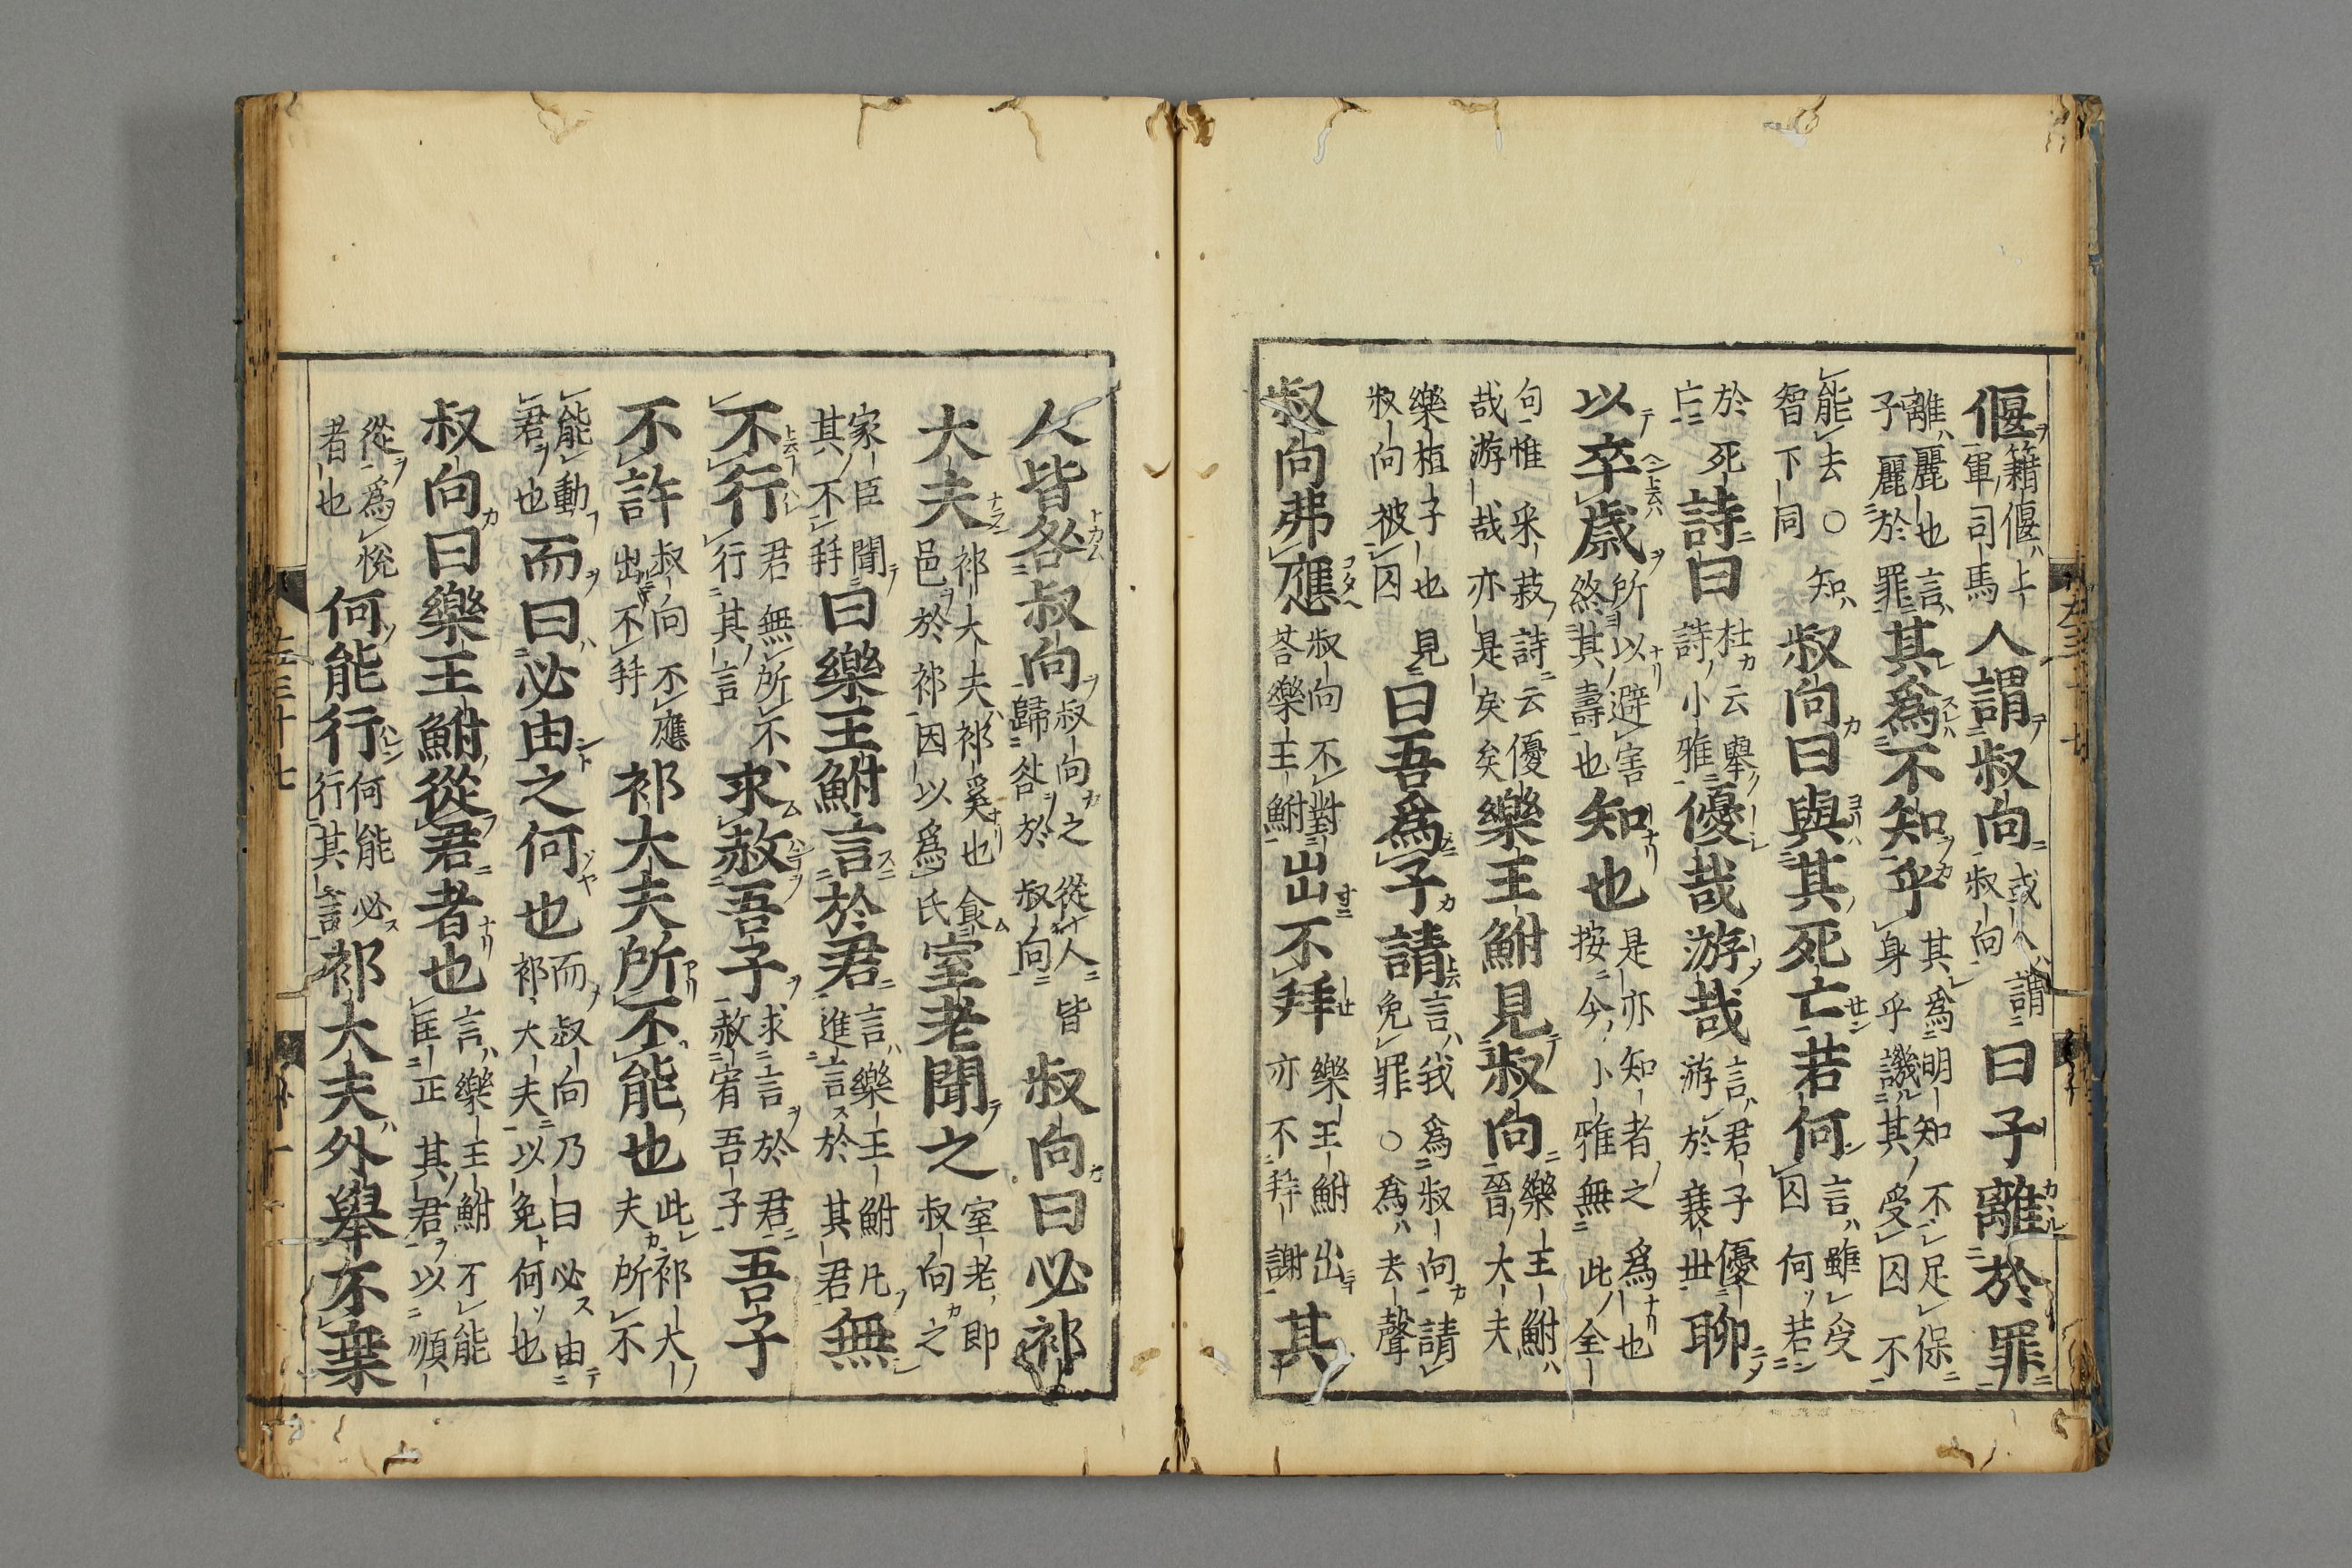 偃籍偃上軍司馬人謂叔向或人謂叔向曰子離於罪
離麗也言子麗於罪其爲不知乎其爲明知不足保身乎譏其受囚不
能去○知智下同叔向曰與其死亡若何言雖受囚何若
於死亡詩曰杜云詩小雅優哉游哉言君子優游於衰世聊
以卒歲所以避害煞其壽也知也是亦知者之爲也按今小雅無此全
句惟采菽詩云優哉游哉亦是戾矣樂王鮒見叔向樂王鮒晉大夫
樂桓子也叔向被囚見曰吾爲子請言我爲叔向請免罪○爲去聲
叔向弗應叔向不對荅樂王鮒出不拜樂王鮒出亦不拜謝其
人皆咎叔向叔向之從人皆歸咎於叔向叔向曰必祁
大夫祁大夫祁奚也食邑於祁因以爲氏室老聞之室老即叔向之
家臣聞其不拜曰樂王鮒言於君言樂王鮒進言於其君凡無
不行君無所不行其言求赦吾子求言於君赦宥吾子吾子
不許叔向不應出不拜祁大夫所不能也此祁大夫所不
能動君也而曰必由之何也而叔向乃曰必由祁大夫以免何也
叔向曰樂王鮒從君者也言樂王鮒不能匡正其君以順
從爲悅者也何能行何能必行其言祁大夫外舉不棄